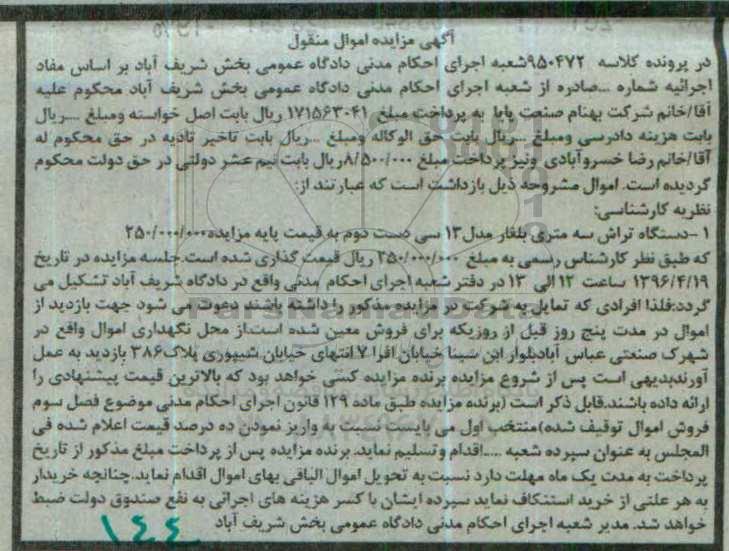 آگهی مزایده اموال منقول
در پرونده کلاسه ۹۵۰۴۷۲شعبه اجرای احکام مدنی دادگاه عمومی بخش شریف آباد بر اساس مفاد
اجرائیه شماره ...صادره از شعبه اجرای احکام مدنی دادگاه عمومی بخش شریف آباد محکوم علیه
آقا/خانم شرکت بهنام صنعت پایا به پرداخت مبلغ ۱۷۱۵۶۳۰۴۱ ریال بابت اصل خواسته ومبلغ ...ریال
بابت هزینه دادرسی ومبلغ ...ریال بابت حق الوکاله ومبلغ ...ریال بابت تاخیر تادیه در حق محکوم له
آقا/خانم رضا خسروآبادی ونیز پرداخت مبلغ ۸/۵۰۰/۰۰۰ریال بابت نیم عشر دولتی در حق دولت محکوم
گردیده است. اموال مشروحه ذیل بازداشت است که عبارتند از:
نظریه کارشناسی:
۱ -دستگاه تراش سه متری بلغار مدل۱۳ سی دست دوم به قیمت پایه مزایده۲۵۰/۰۰۰/۰۰۰
که طبق نظر کارشناس رسمی به مبلغ ۲۵۰/۰۰۰/۰۰۰ ریال قیمت گذاری شده است.جلسه مزایده در تاریخ
۱۳۹۶/۴/۱۹ ساعت ۱۲الی ۱۳در دفتر شعبه اجرای احکام مدنی واقع در دادگاه شریف آباد تشکیل می
گردد:فلذا افرادی که تمایل به شرکت در مزایده مذکور را داشته باشند دعوت می شود جهت بازدید از
اموال در مدت پنج روز قبل از روزیکه برای فروش معین شده است.از محل نگهداری اموال واقع در
شهرک صنعتی عباس آبادبلوار ابن سینا خیابان اقرا ۷ انتهای خیابان شیپوری پلاک۳۸۶ بازدید به عمل
آورندبدیهی است پس از شروع مزایده برنده مزایده کسی خواهد بود که بالاترین قیمت پیشنهادی را
ارائه داده باشند.قابل ذکر است (برنده مزایده طبق ماده ۱۲۹ قانون اجرای احکام مدنی موضوع فصل سوم
فروش اموال توقیف شده)منتخب اول می بایست نسبت به واریز نمودن ده درصد قیمت اعلام شده فی
المجلس به عنوان سپرده شعبه ....اقدام وتسلیم نماید. برنده مزایده پس از پرداخت مبلغ مذکور از تاریخ
پرداخت به مدت یک ماه مهلت دارد نسبت به تحویل اموال الباقی بهای اموال اقدام نماید.چنانچه خریدار
به هر علتی از خرید استنکاف نماید سپرده ایشان با کسر هزینه های اجرائی به نفع صندوق دولت ضبط
خواهد شد. مدیر شعبه اجرای احکام مدنی دادگاه عمومی بخش شریف آباد
۱۴۴
ParsNamadData